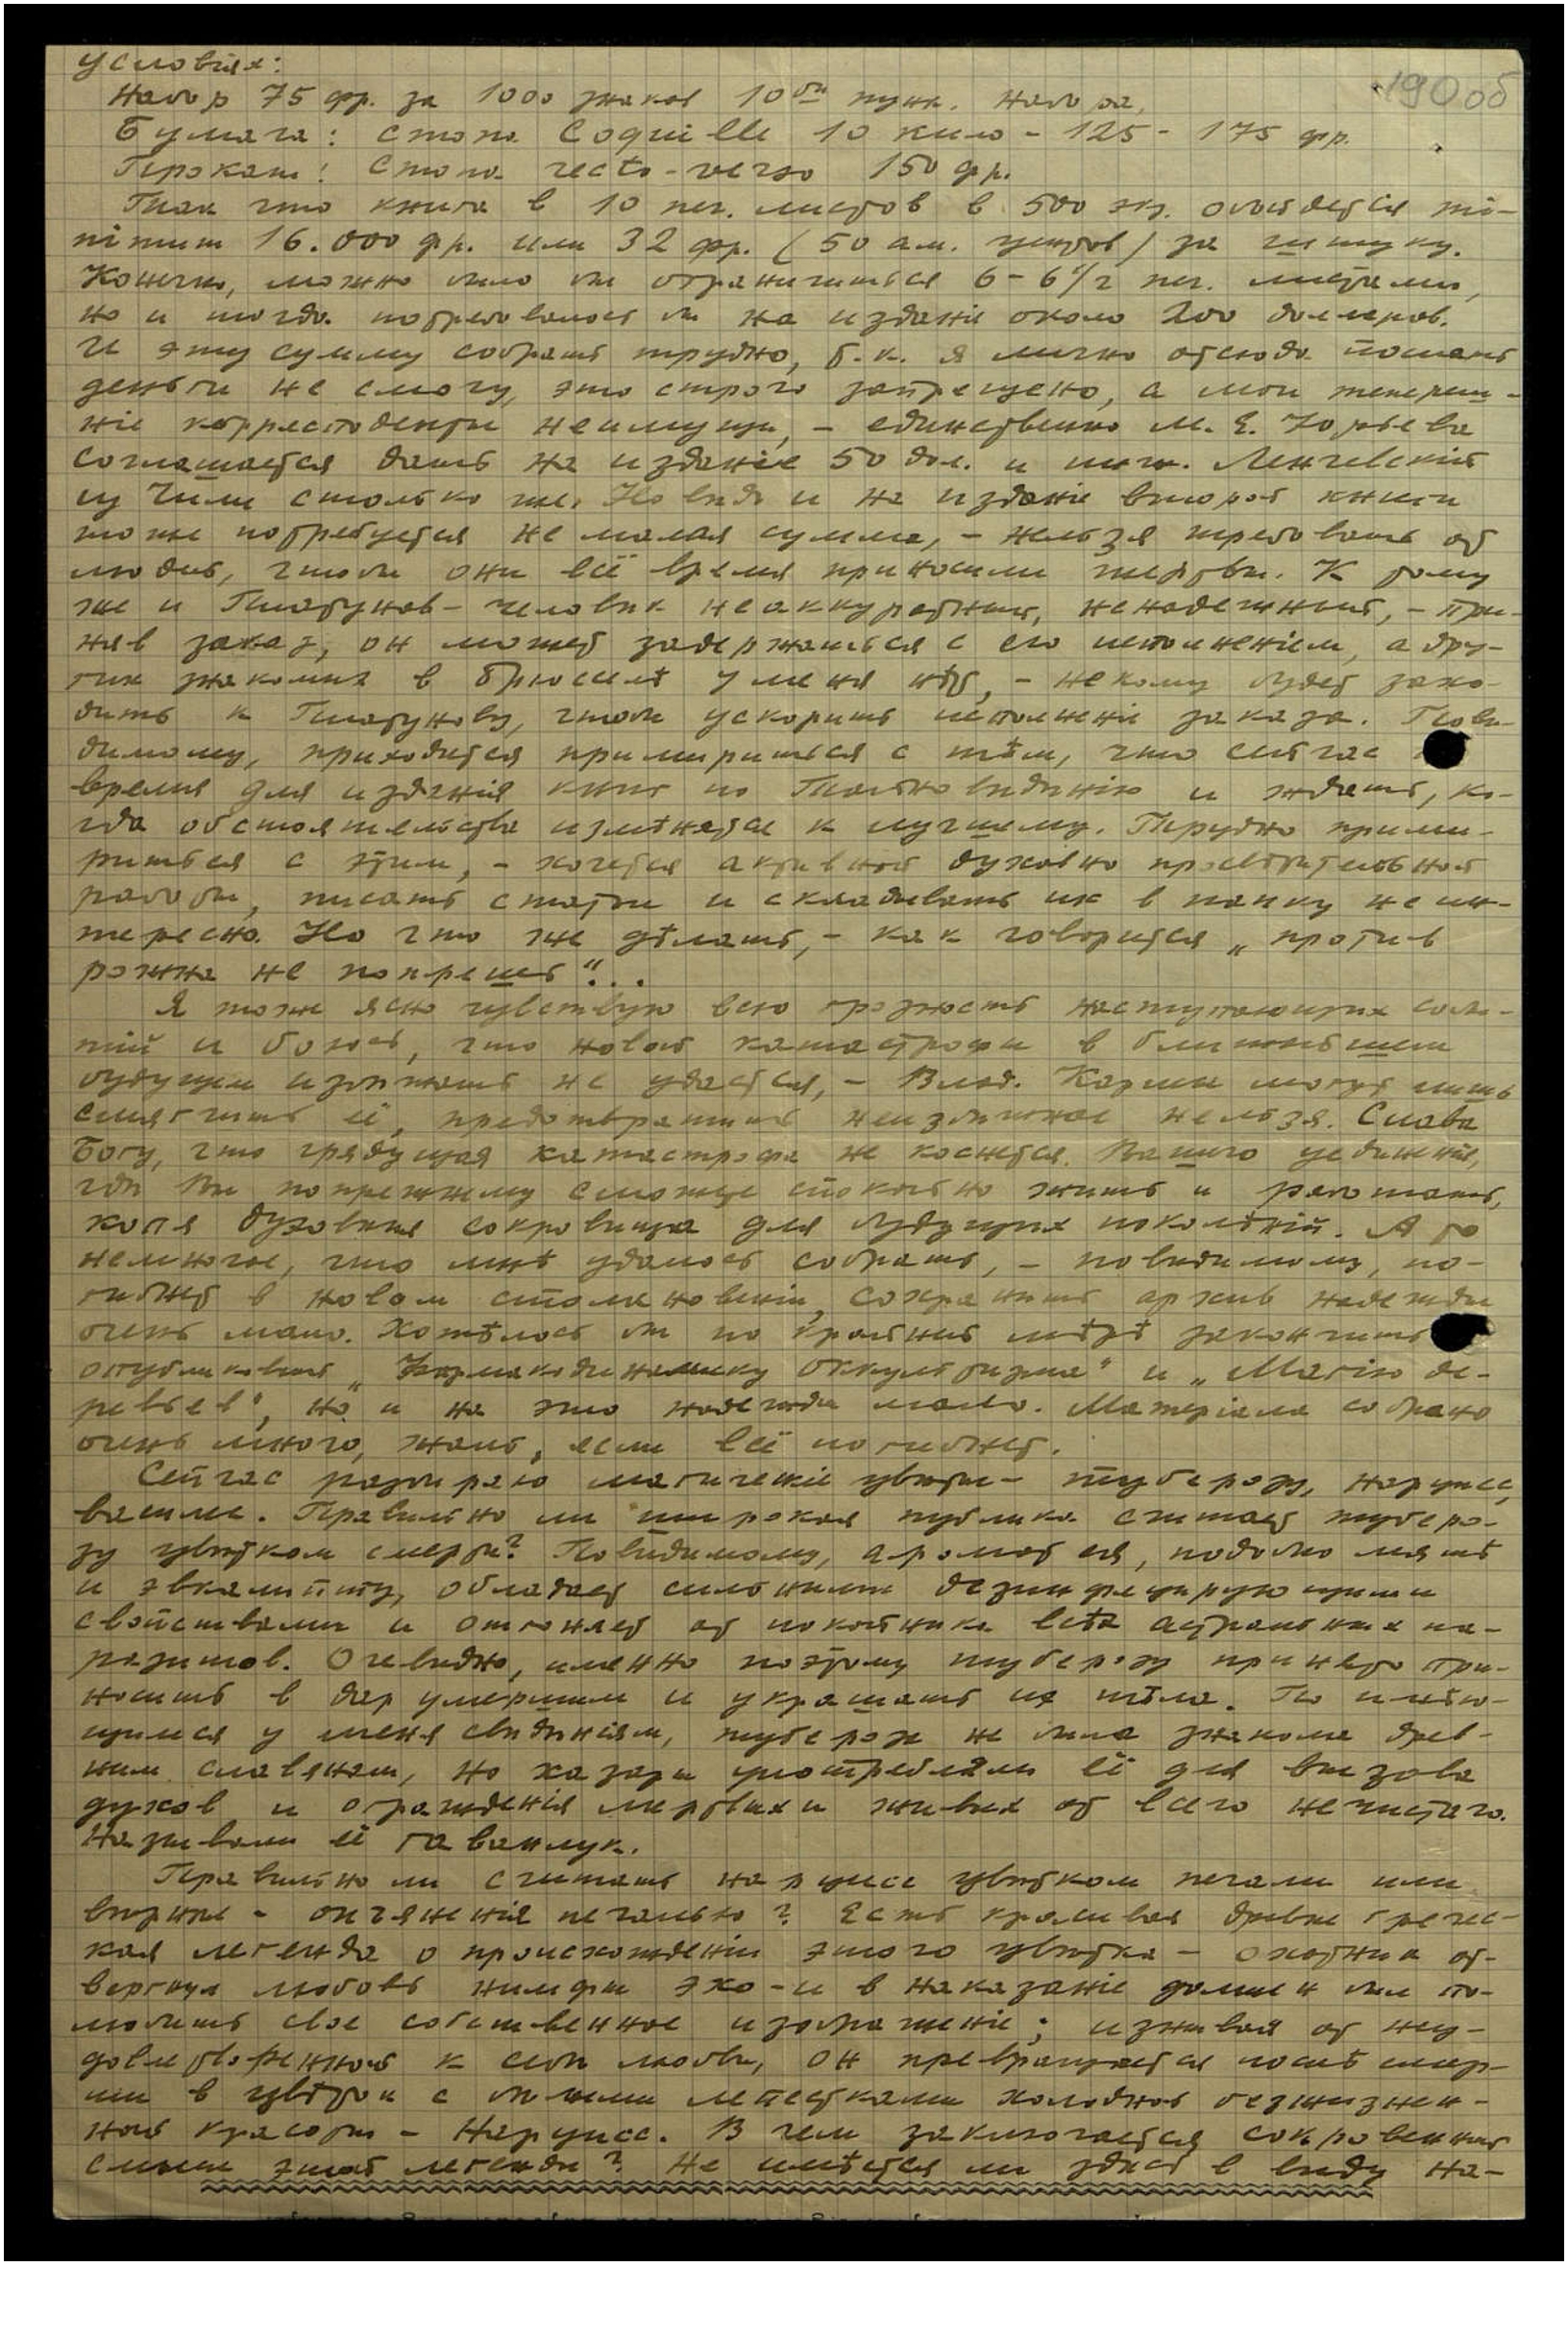 условіях:
190 об
Набор 75 фр. за 1000 знаков 10ти пунк. набора,
Бумага: стопа Coquille 10 кило - 125 - 175 фр.
Прокат: Стопа recto-verso 150 фр.
Так что книга в 10 печ. листов в 500 экз. обойдется mi-
nimum 16.000 фр. или 32 фр. (50 ам. центов) за штуку.
Конечно, можно было бы ограничиться 6 - 6 1/2 печ. листами,
но и тогда потребовалось бы на изданіе около 200 долларов.
И эту сумму собрать трудно, т.к. я лично отсюда послать
деньги не смогу, это строго запрещено, а мои тепереш-
ніе корреспонденты неимущи, - единственно М. Е. Юрьева
соглашается дать на изданіе 50 дол. и инж. Ленчевскій
из Чили столько же. Но ведь и на изданіе второй книги
тоже потребуется не малая сумма, - нельзя требовать от
людей, чтобы они всё время приносили жертвы. К тому
же и Платунов - человѣк неаккуратный, ненадежный, - при-
няв заказ, он может задержаться с его исполненіем, а дру-
гих знакомых в Брюсселѣ у меня нѣт, - некому будет захо-
дить к Платунову, чтобы ускорить исполненіе заказа. Пови-
димому, приходится примириться с тѣм, что сейчас
время для изданія книг по Тайновидѣнію и ждать, ко-
гда обстоятельства измѣнятся к лучшему. Трудно прими-
риться с этим, - хочется активной духовно просвѣтительной
работы, писать статьи и складывать их в папку не ин-
тересно. Но что же дѣлать, - как говорится „против
рожна не попрешь"...
Я тоже ясно чувствую всю грозность наступающих собы-
тій и боюсь, что новой катастрофы в ближайшем
будущем избѣжать не удастся, - Влад. Кармы могут лишь
смягчить её, предотвратить неизбѣжное нельзя. Слава
Богу, что грядущая катастрофа не коснется Вашего уединенія,
гдѣ Вы попрежнему сможете спокойно жить и работать,
копя духовныя сокровища для будущих поколѣній. А то
немногое, что мнѣ удалось собрать, - повидимому, по-
гибнет в новом столкновеніи, сохранить архив надежды
очень мало. Хотѣлось бы по крайней мѣрѣ закончить
опубликовать „Фармакодинамику оккультизма" и „Магію де-
ревьев", но и на это надежды мало. Матеріала собрано
очень много, жаль, если всё погибнет.
Сейчас разбираю магическіе цвѣты - туберозу, нарцисс,
Правильно ли широкая публика считает туберо-
зу цвѣтком смерти? Повидимому, аромат ея, подобно мятѣ
и эвкалипту, обладает сильными дезинфецирующими
свойствами и отгоняет от покойника всѣх астральных па-
разитов. Очевидно, именно поэтому туберозу принято при-
носить в дар умершим и украшать их тѣла. По имѣю-
щимся у меня свѣдѣніям, тубероза не была знакома древ-
ним славянам, но хазары употребляли её для вызова
духов и огражденія мертвых и живых от всего нечистаго.
Называли её гаванлук.
Правильно ли считать нарцисс цвѣтком печали или
вѣрнѣе - опьяненія печалью? Есть красивая древне гречес-
кая легенда о происхожденіи этого цвѣтка - охотник от-
вергнул любовь нимфы Эхо - и в наказаніе должен был по-
любить свое собственное изображеніе; изнывая от неу-
довлетворенной к себѣ любви, он превращается послѣ смер-
ти в цвѣток с бѣлыми лепестками холодной безжизнен-
ной красоты - Нарцисс. В чем заключается сокровенный
смысл этой легенды? Не имѣется ли здѣсь в виду на-